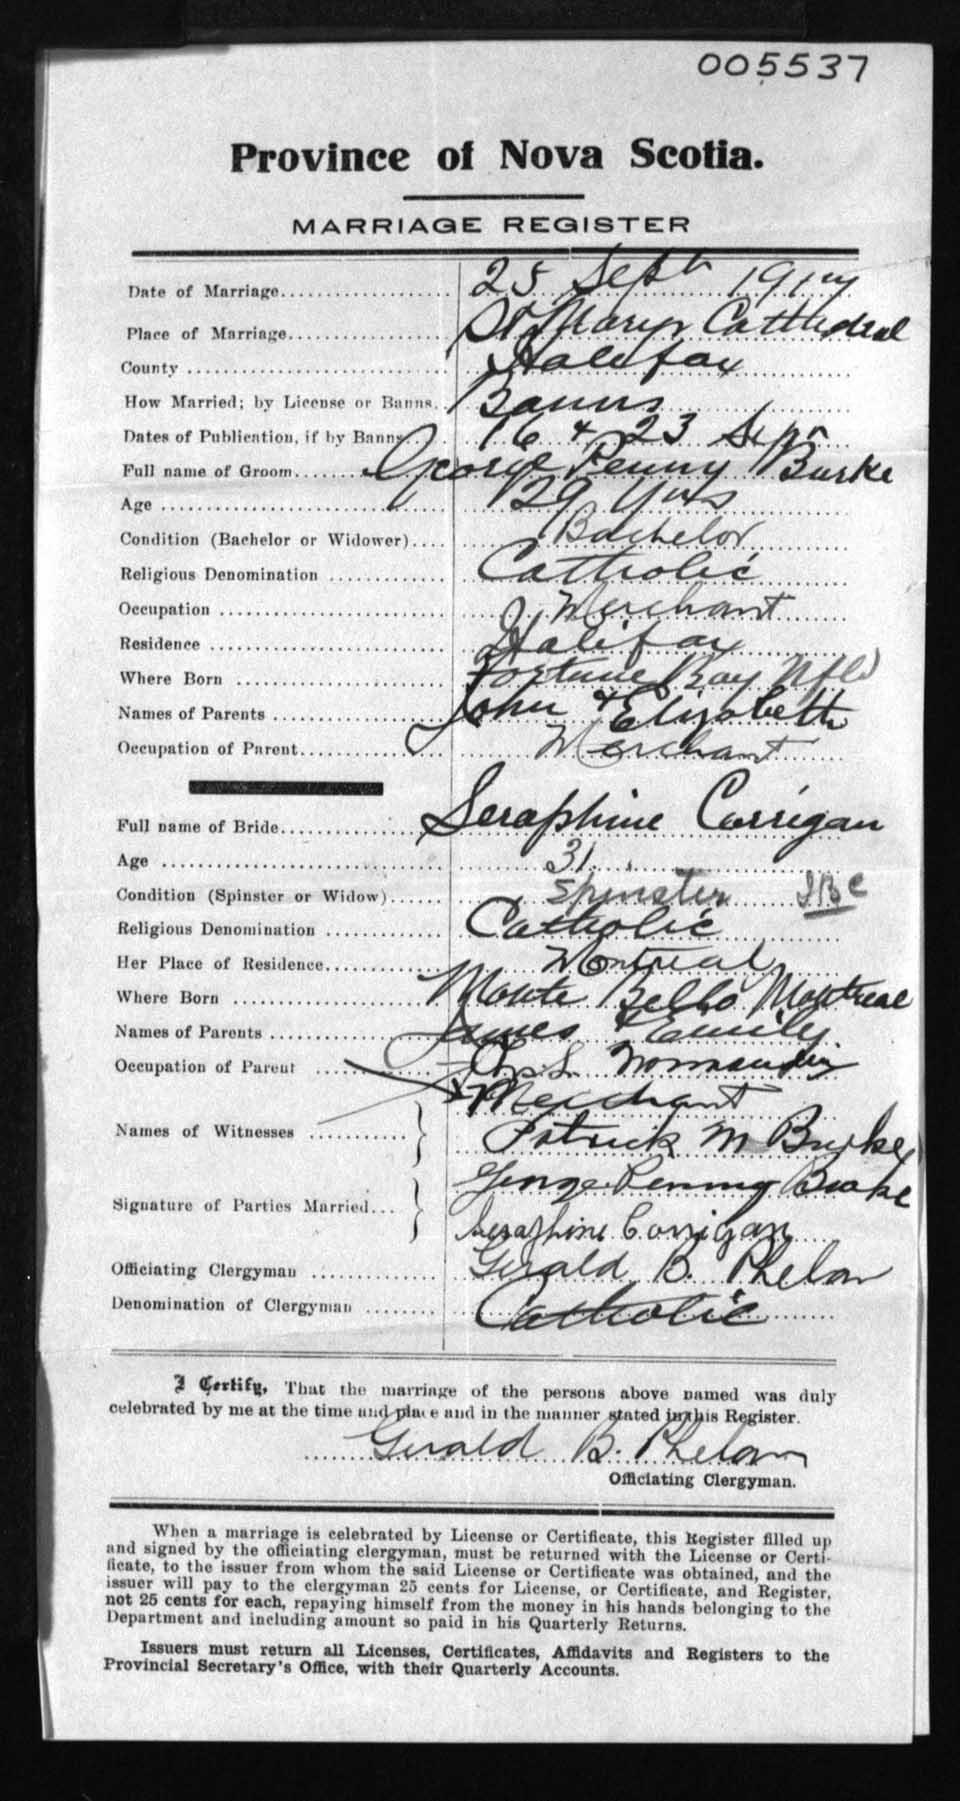 005537
Province of Nova Scotia.
MARRIAGE REGISTER
Date of Marriage 25 Sept 1917
Place of Marriage St Marys Cathedral
County Halifax
How Married; by License or Banns. Banns
Dates of Publication, if by Banns 16 & 23 Sept
Full name of Groom George Penny Burke
Age 29 yrs
Condition (Bachelor or Widower) Bachelor
Religious Denomination Catholic
Occupation Merchant
Residence Halifax
Where Born Fortune Bay Nfld
Names of Parents John & Elizabeth
Occupation of Parent Merchant
Full name of Bride Seraphine Corrigan
Age 31
Condition (Spinster or Widow) Spinster
Religious Denomination Catholic
Her Place of Residence Montreal
Where Born Monte Bello Montreal
Names of Parents James & Emily
Occupation of Parent Merchant
Normandin
Names of Witnesses Patrick M Burke
Signature of Parties Married George Penny Burke
Seraphine Corrigan
Officiating Clergyman Gerald B. Phelan
Denomination of Clergyman Catholic
I Certify, That the marriage of the persons above named was duly
celebrated by me at the time and place and in the manner stated in this Register.
Gerald B. Phelan
Officiating Clergyman.
When a marriage is celebrated by License or Certificate, this Register filled up
and signed by the officiating clergyman, must be returned with the License or Certi-
ficate, to the issuer from whom the said License or Certificate was obtained, and the
issuer will pay to the clergyman 25 cents for License, or Certificate, and Register,
not 25 cents for each, repaying himself from the money in his hands belonging to the
Department and including amount so paid in his Quarterly Returns.
Issuers must return all Licenses, Certificates, Affidavits and Registers to the
Provincial Secretary's Office, with their Quarterly Accounts.